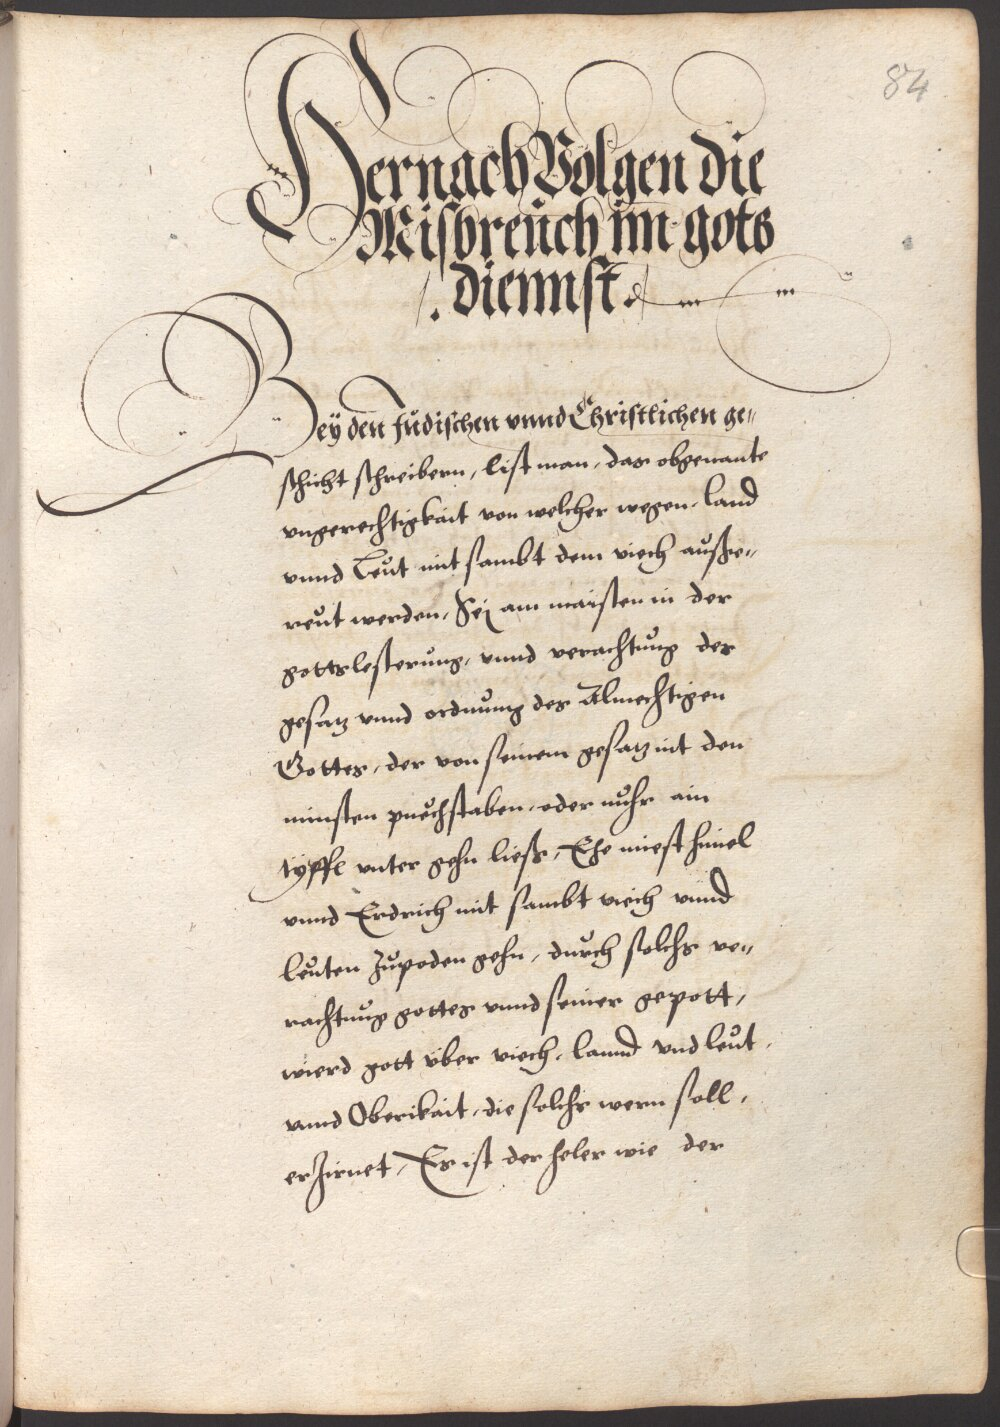 84
Hernach Volgen die
Misbreuch im gots
diennst.
Bey den Judischen unnd Christlichen ge„
schicht schreibern, list man, das obgenante
ungerechtigkait von welcher wegen, land
unnd Leut mit sambt dem viech außge„
reut werden, Sei am maisten in der
gottslesterung, unnd verachtung des
gesatz unnd ordnung des Almechtigen
Gottes, der von seinem gesatz nit den
minsten puechstaben, oder nuhr ain
typffl unter gehn ließ, Ehe miest himel
unnd Erdrich mit sambt viech unnd
leuten zupoden gehn, durch solchs ve„
rachtung gottes unnd seiner gepott,
wierd gott über viech, lannd und leut,
unnd Oberikait, die solchs wern soll,
erzirnet, Es ist der heler wie der